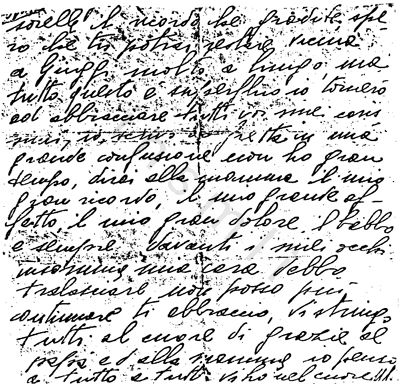 sorelle il ricordo che gradite spe
ro che tu potrai restare vicina
a lungo molto a lungo ma
tutto questo è superfluo io tornerò
ad abbracciare tutti voi me
mici, io scrivo in fretta in una
grande confusione e non ho gran
tempo, dirai alla mamma il mio
gran ricordo, il mio grande af
fetto, il mio gran dolore. Il babbo
è sempre davanti i miei occhi
insomma una cara debbo
tralasciare non posso più
continuare ti abbraccio, vi stringo
tutti al cuore di grazie al
papà ed alla mamma io penso
a tutto a tutti vi ho nel cuore!!!